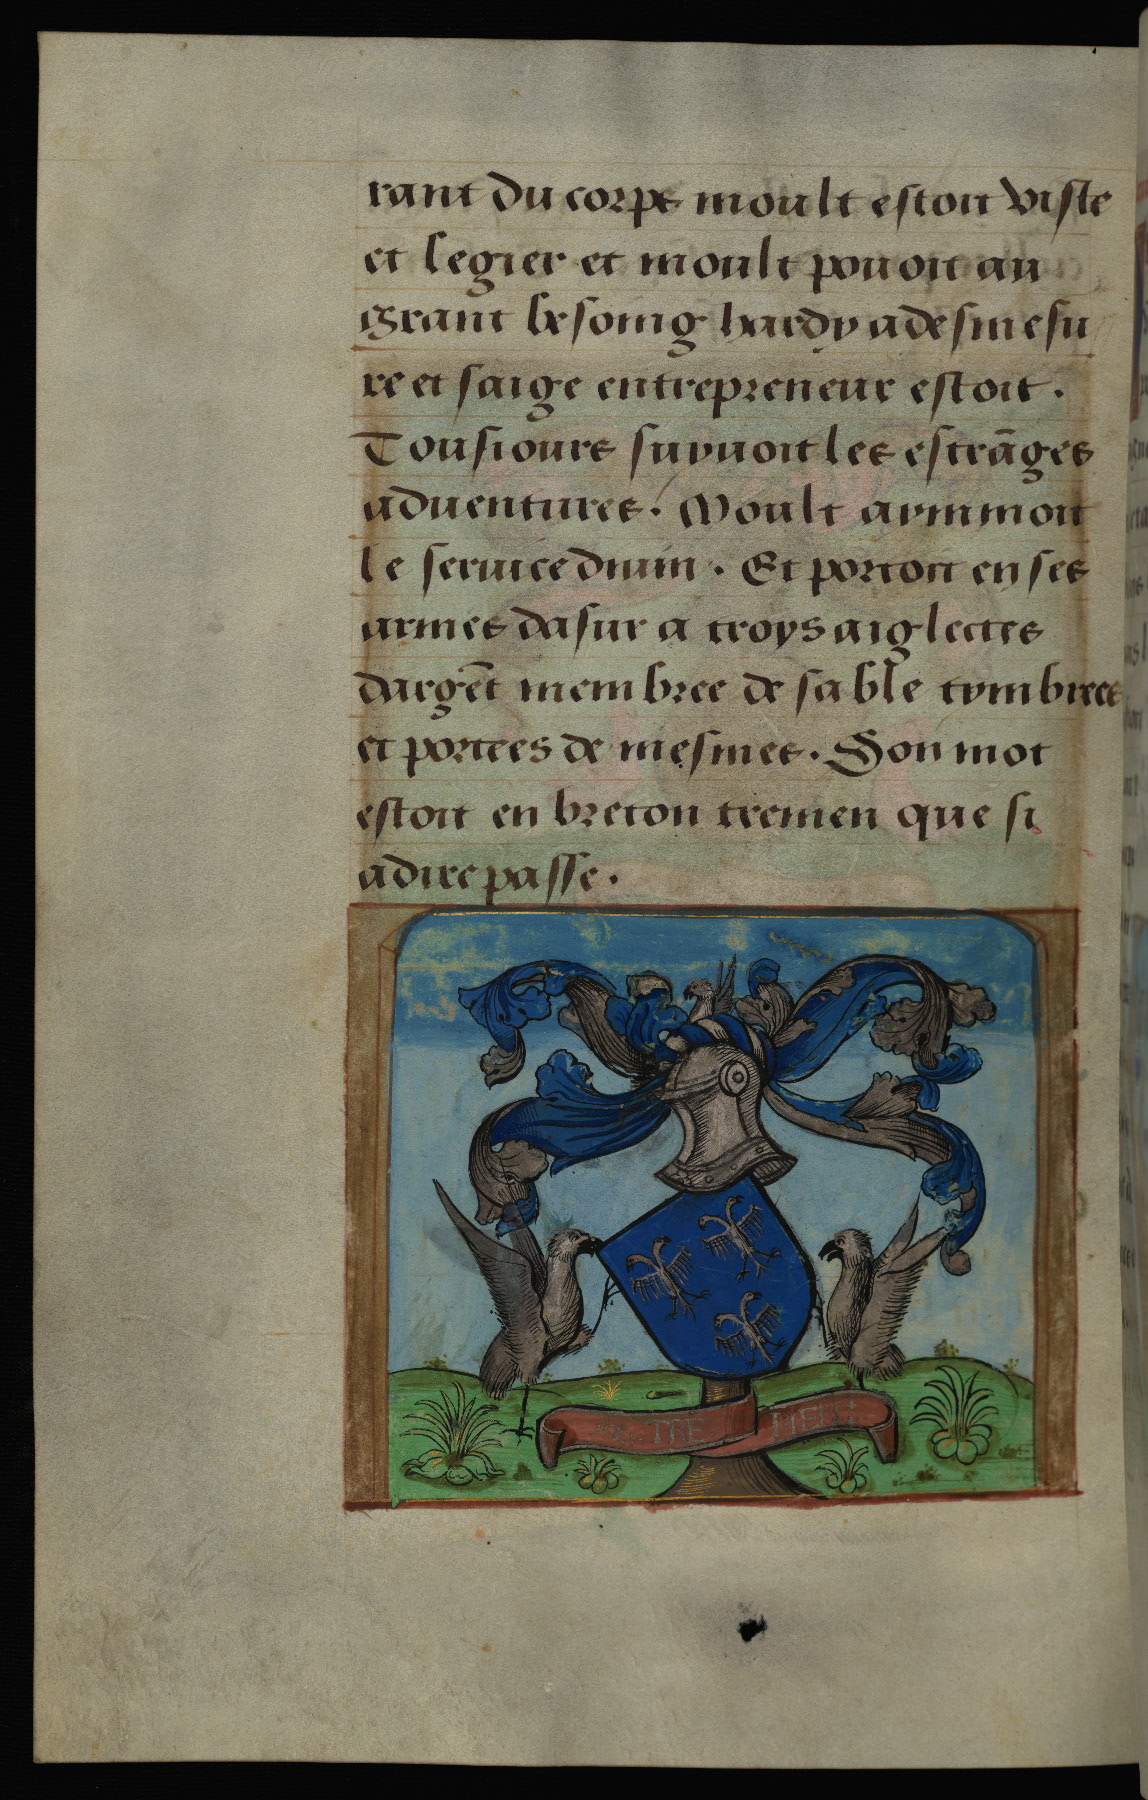 rant du corps moult estoit viste
et legier et moult pouoit au
grant besoing hardy a desmesu
re et saige entrepreneur estoit.
Tousiours suyuoit les estrãges
aduentures. Moult aymmoit
le seruice diuin. Et portoit en ses
armes dasur a troys aiglettes
dargẽt membree de sable tymbrees
et portees de mesmes. Son mot
estoit en breton tremen que si
a dire passe.
TRE MEN